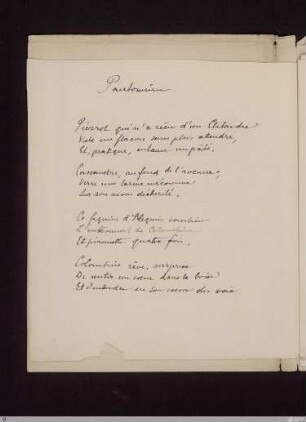 Pantomime.
Pierrot qui n'a rien d'un Clitandre
Vide un flacon sans plus attendre,
Et, pratique, entame un pâté.
Cassandre, au fond de l'avenue,
Verse une larme méconnue
Sur son neveu déshérité.
Ce faquin d'Arlequin combine
L'enlèvement de Colombine
Et pirouette quatre fois.
Colombine rêve, surprise
De sentir un cœur dans la brise
Et d'entendre en son cœur des voix.